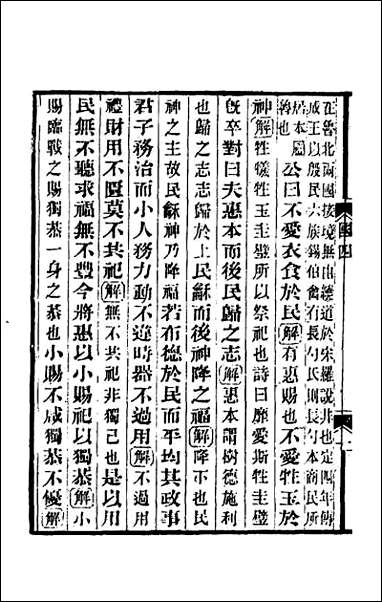 在魯北兩國接境無由繞道於宋羅說非也定四年傳
成王以殷民六族錫伯禽有長勺氏則長勺本商民所
居本屬
魯也公曰不愛衣食於民解有惠賜也不愛牲玉於
神解牲犧牲玉圭璧所以祭祀也詩曰靡愛斯牲圭璧
既卒對曰夫惠本而後民歸之志解惠本謂樹德施利
也歸之志志歸於上民龢而後神降之福解降下也民
神之主故民龢神乃降福若布德於民而平均其政事
君子務治而小人務力動不違時器不過用解不過用
禮財用不匱莫不共祀解無不共祀非獨己也是以用
民無不聽求福無不豐今將惠以小賜祀以獨恭解小
賜臨戰之賜獨恭一身之恭也小賜不咸獨恭不優解